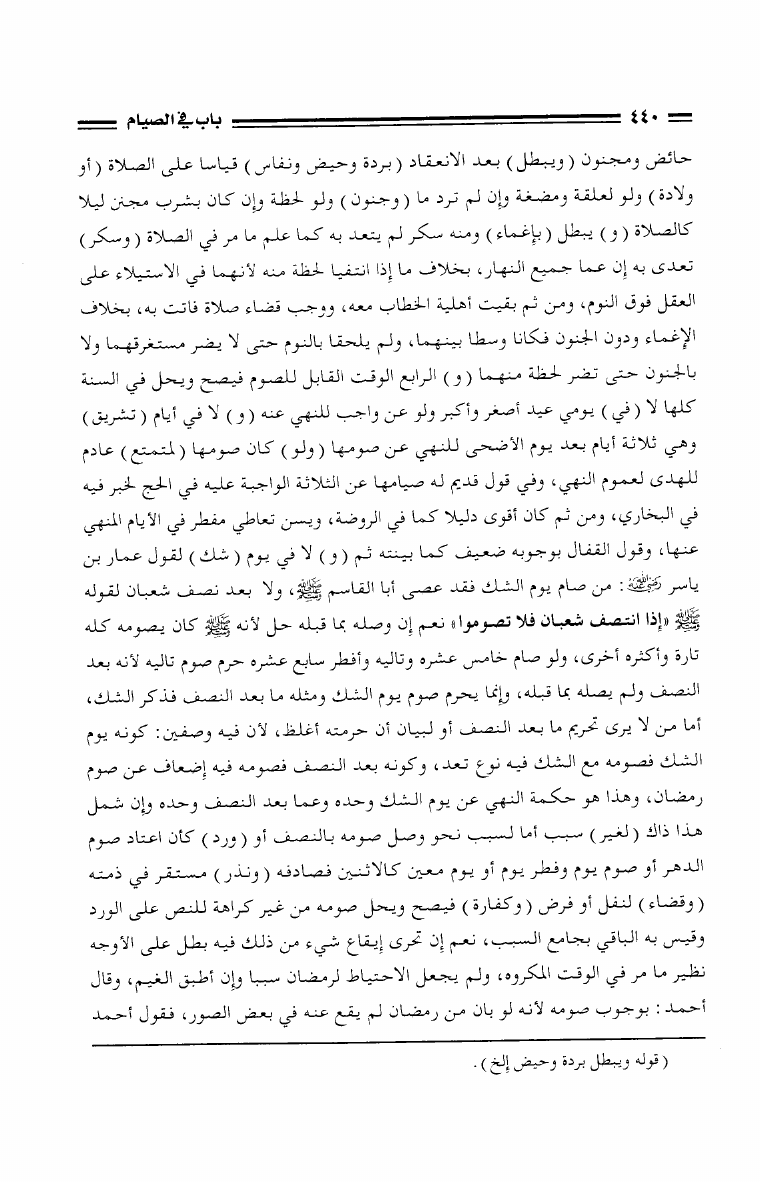 ٤٤٠ باب في الصيام
حائض ومجنون (ويبطل) بعد الانعقاد (بردة وحيض ونفاس) قياسا على الصلاة (أو
ولادة) ولو لعلقة ومضغة وإن لم ترد ما (وجنون) ولو لحظة وإن كان بشرب مجنن ليلا
كالصلاة (و) يبطل (بإغماء) ومنه سكر لم يتعد به كما علم ما مر في الصلاة (وسكر)
تعدى به إن عما جميع النهار، بخلاف ما إذا انتفيا لحظة منه لأنهما في الاستيلاء على
العقل فوق النوم، ومن ثم بقيت أهلية الخطاب معه، ووجب قضاء صلاة فاتت به، بخلاف
الإغماء ودون الجنون فكانا وسطا بينهما، ولم يلحقا بالنوم حتى لا يضر مستغرقهما ولا
بالجنون حتى تضر لحظة منهما (و) الرابع الوقت القابل للصوم فيصح ويحل في السنة
كلها لا (في) يومي عيد أصغر وأكبر ولو عن واجب للنهي عنه (و) لا في أيام (تشريق)
وهي ثلاثة أيام بعد يوم الأضحى للنهي عن صومها (ولو) كان صومها (لمتمتع) عادم
للهدى لعموم النهي، وفي قول قديم له صيامها عن الثلاثة الواجبة عليه في الحج لخبر فيه
في البخاري، ومن ثم كان أقوى دليلا كما في الروضة، ويسن تعاطي مفطر في الأيام المنهي
عنها، وقول القفال بوجوبه ضعيف كما بينته ثم (و) لا في يوم (شك) لقول عمار بن
ياسر رضي الله عنه: من صام يوم الشك فقد عصى أبا القاسم ﷺ، ولا بعد نصف شعبان لقوله
ﷺ «إذا انتصف شعبان فلا تصوموا» نعم إن وصله بما قبله حل لأنه ﷺ كان يصومه كله
تارة وأكثره أخرى، ولو صام خامس عشره وتاليه وأفطر سابع عشره حرم صوم تاليه لأنه بعد
النصف ولم يصله بما قبله، وإنما يحرم صوم يوم الشك ومثله ما بعد النصف فذكر الشك،
أما من لا يرى تحريم ما بعد النصف أو لبيان أن حرمته أغلظ، لأن فيه وصفين: كونه يوم
الشك فصومه مع الشك فيه نوع تعد، وكونه بعد النصف فصومه فيه إضعاف عن صوم
رمضان، وهذا هو حكمة النهي عن يوم الشك وحده وعما بعد النصف وحده وإن شمل
هذا ذاك (لغير) سبب أما لسبب نحو وصل صومه بالنصف أو (ورد) كأن اعتاد صوم
الدهر أو صوم يوم وفطر يوم أو يوم معين كالاثنين فصادفه (ونذر) مستقر في ذمته
(وقضاء) لنفل أو فرض (وكفارة) فيصح ويحل صومه من غير كراهة للنص على الورد
وقيس به الباقي بجامع السبب، نعم إن تحرى إيقاع شيء من ذلك فيه بطل على الأوجه
نظير ما مر في الوقت المكروه، ولم يجعل الاحتياط لرمضان سببا وإن أطبق الغيم، وقال
أحمد: بوجوب صومه لأنه لو بان من رمضان لم يقع عنه في بعض الصور، فقول أحمد
(قوله ويبطل بردة وحيض إلخ).